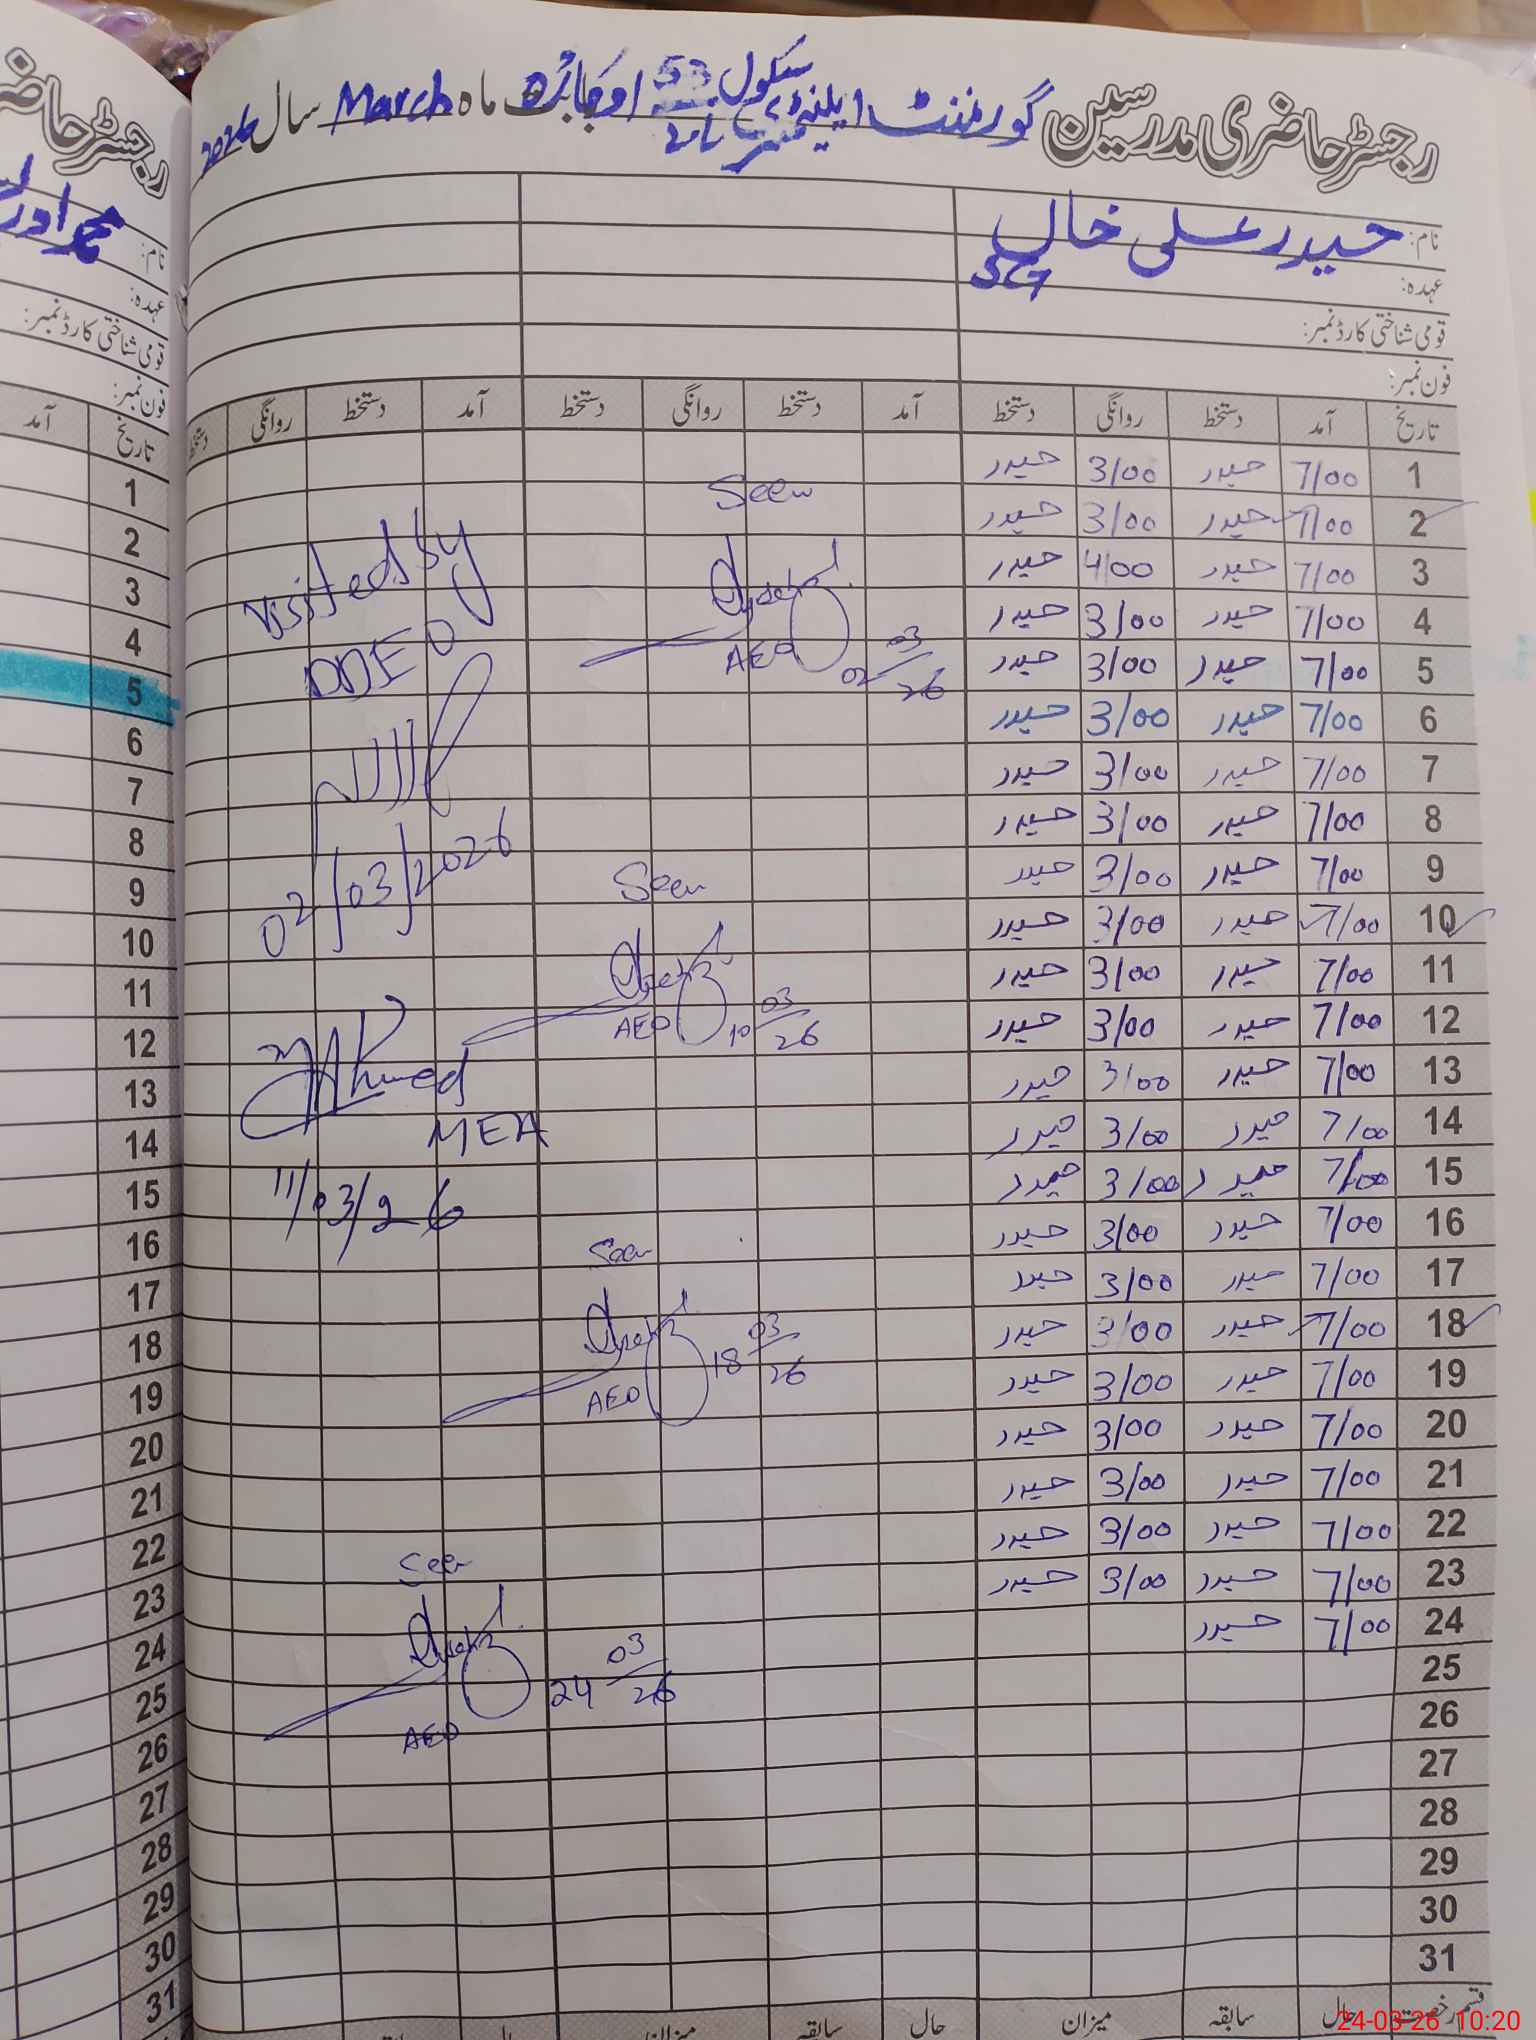 رجسٹر حاضری مدرسین گورنمنٹ ایلیمنٹری سکول 53 بابت ماہ March سال 2026
نام: حیدر علی خان
عہدہ: SG
قومی شناختی کارڈ نمبر:
فون نمبر:
تاریخ آمد دستخط روانگی دستخط آمد دستخط روانگی دستخط آمد دستخط روانگی دستخط
1 7/00 حیدر 3/00 حیدر
2 7/00 حیدر 3/00 حیدر
3 7/00 حیدر 4/00 حیدر
4 7/00 حیدر 3/00 حیدر
5 7/00 حیدر 3/00 حیدر
6 7/00 حیدر 3/00 حیدر
7 7/00 حیدر 3/00 حیدر
8 7/00 حیدر 3/00 حیدر
9 7/00 حیدر 3/00 حیدر
10 7/00 حیدر 3/00 حیدر
11 7/00 حیدر 3/00 حیدر
12 7/00 حیدر 3/00 حیدر
13 7/00 حیدر 3/00 حیدر
14 7/00 حیدر 3/00 حیدر
15 7/00 حیدر 3/00 حیدر
16 7/00 حیدر 3/00 حیدر
17 7/00 حیدر 3/00 حیدر
18 7/00 حیدر 3/00 حیدر
19 7/00 حیدر 3/00 حیدر
20 7/00 حیدر 3/00 حیدر
21 7/00 حیدر 3/00 حیدر
22 7/00 حیدر 3/00 حیدر
23 7/00 حیدر 3/00 حیدر
24 7/00 حیدر
25
26
27
28
29
30
31
قسم رخصت حال سابقہ میزان حال سابقہ میزان حال
Seen
AEO
02 03/26
Seen
AEO
10 03/26
Seen
AEO
18 03/26
Seen
AEO
24 03/26
Visited by
DDEO
02/03/2026
Ahmed
MEA
11/03/26
رجسٹر حاضری
نام: محمد
عہدہ:
قومی شناختی کارڈ نمبر:
فون نمبر:
تاریخ آمد
1
2
3
4
5
6
7
8
9
10
11
12
13
14
15
16
17
18
19
20
21
22
23
24
25
26
27
28
29
30
31
24-03-26 10:20